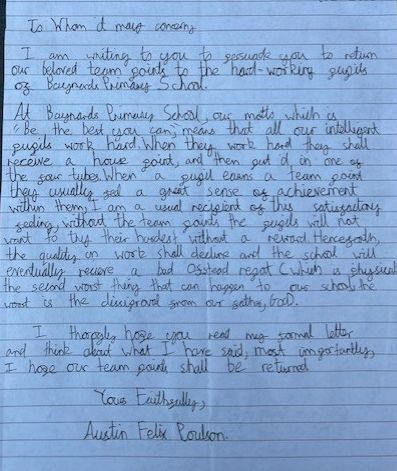 To Whom it may concern,
I am writing to you to persuade you to return
our beloved team points to the hard-working pupils
of Baynards Primary School.
At Baynards Primary School, our motto which is
'Be the best you can', means that all our intelligent
pupils work hard. When they work hard they shall
receive a house point, and then put it in one of
the four tubes. When a pupil earns a team point
they usually feel a great sense of achievement
within them, I am a usual recipient of this satisfactory
feeling, without the team points the pupils will not
want to try their hardest without a reward. Henceforth,
the quality on work shall decline and the school will
eventually recieve a bad Ofstead report (which is physical
the second worst thing that can happen to our school, the
worst is the disaproval from our father, GOD.
I thoroghly hope you read my formal letter
and think about what I have said, most importantly,
I hope our team points shall be returned
Yous Faithfully,
Austin Felix Poulson.